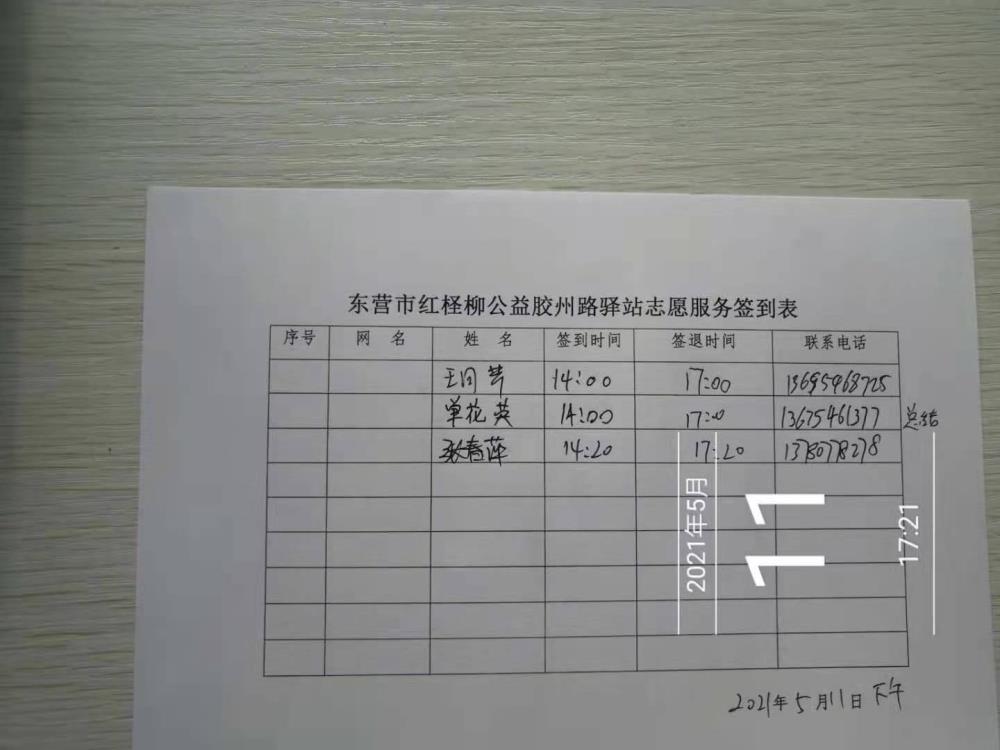 东营市红柽柳公益胶州路驿站志愿服务签到表
序号 网 名 姓 名 签到时间 签退时间 联系电话
14:00 17:00 13695468725
单花英 14:00 17:00 13675461377 总结
张春萍 14:20 17:20
2021年5月
11
17:21
2021年5月11日下午